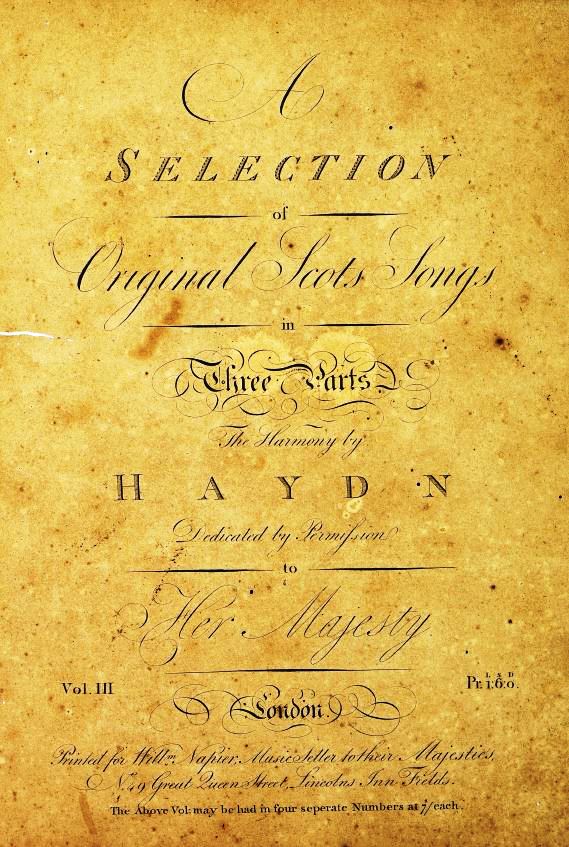 A
SELECTION
of
Original Scots Songs
in
Three Parts
The Harmony by
HAYDN
Dedicated by Permission
to
Her Majesty
Vol. III
L S D
Pr. 1:6:0.
London.
Printed for Willm. Napier, Music Seller to their Majesties,
No. 49 Great Queen Street, Lincolns Inn Fields.
The Above Vol: may be had in four seperate Numbers at 7/ each.